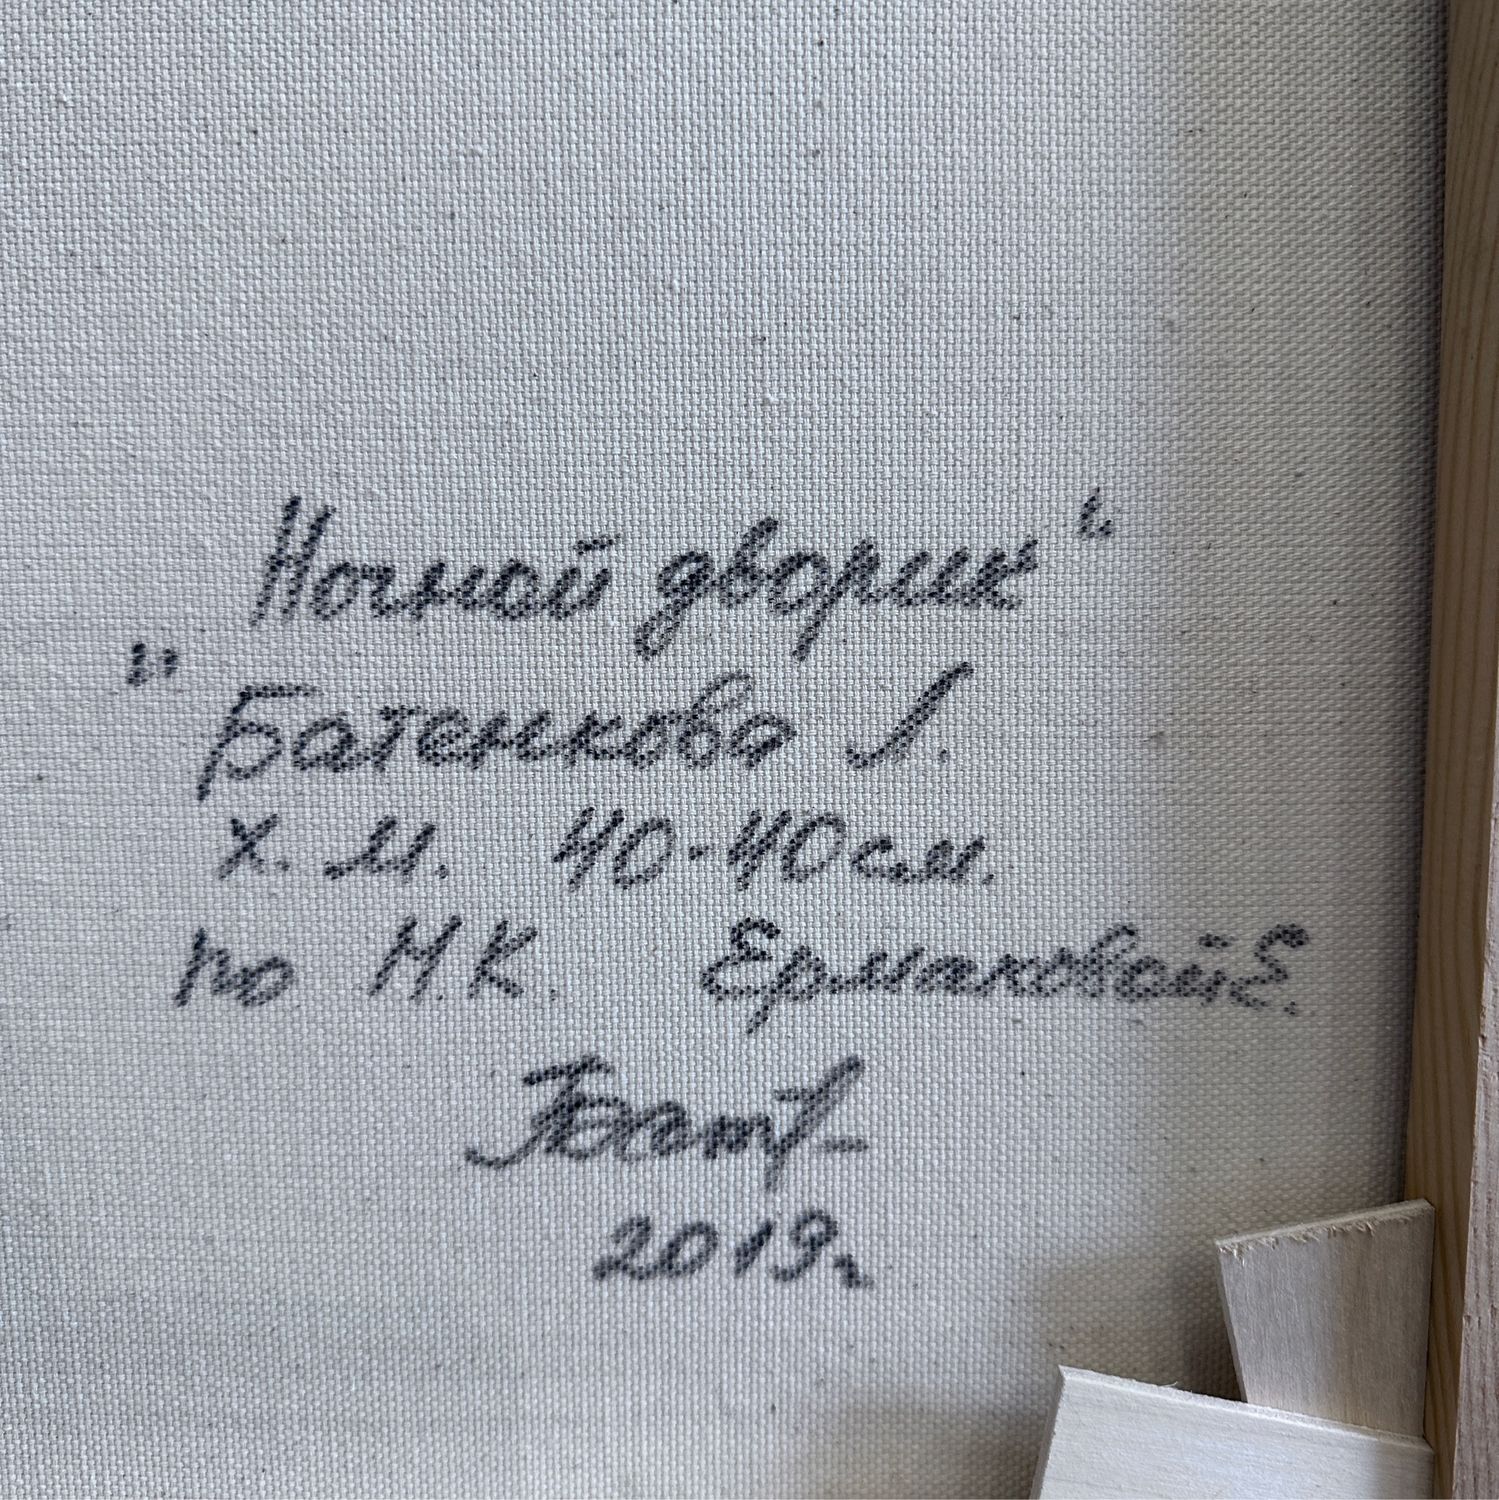 „Ночной дворик“
Батенкова Л.
х. м. 40-40см.
по М.К. Ермаковой Е.
2019г